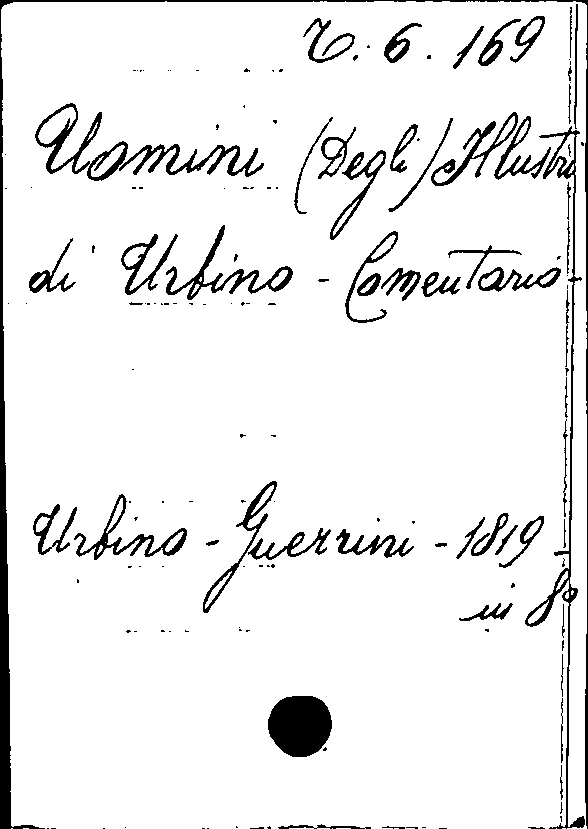 T. 6. 169
Uomini (Degli) Illustri
di Urbino - Comentario -
Urbino - Guerrini - 1819 -
in 8°